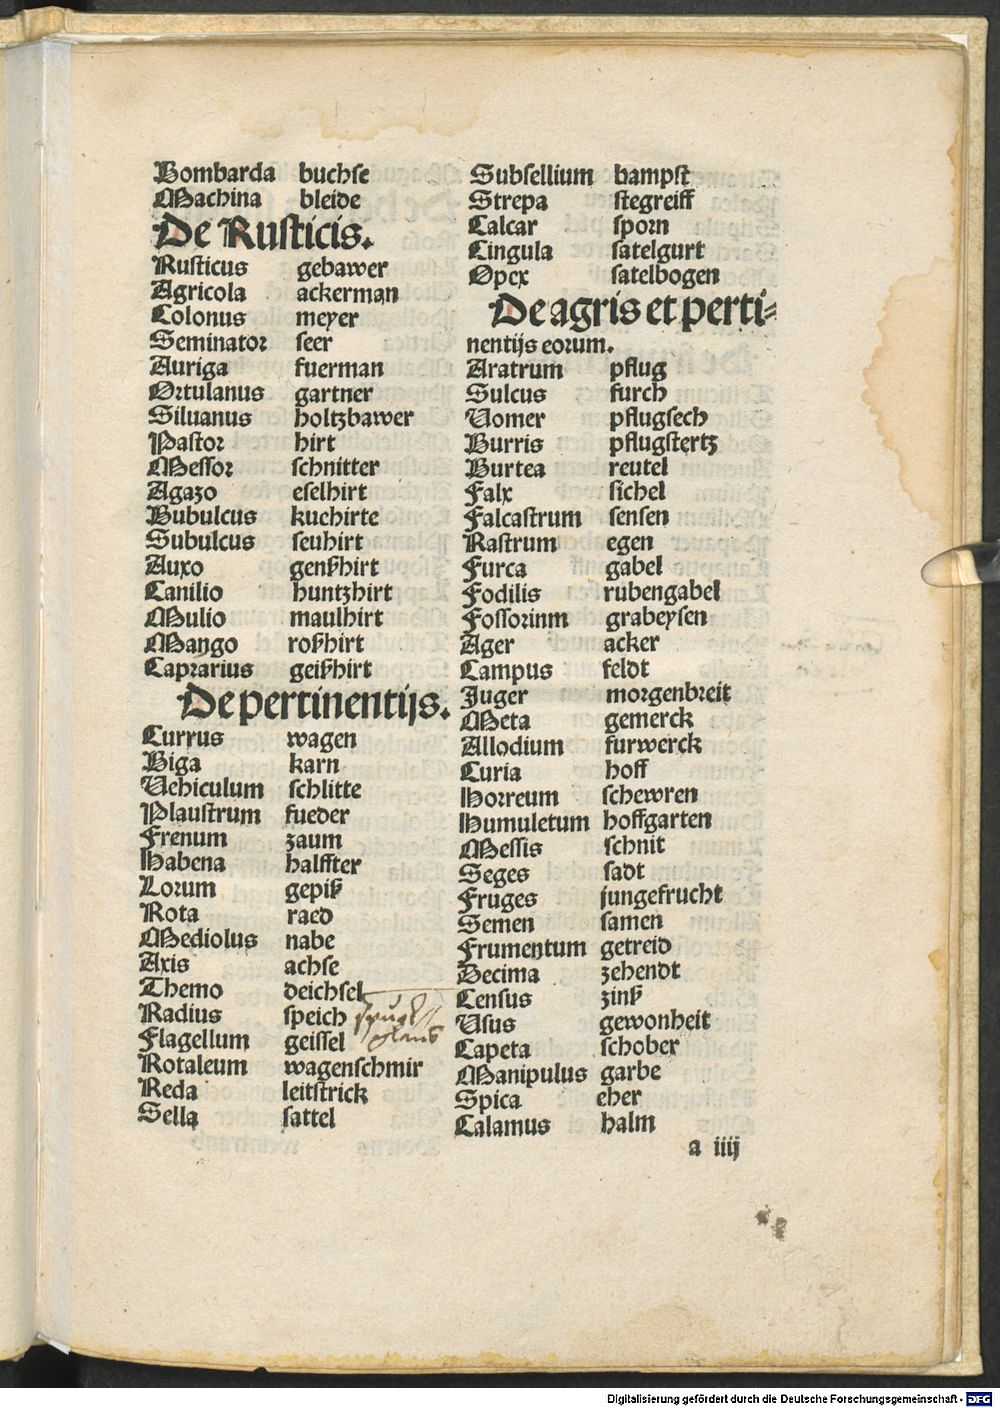 Bombarda buchse
Machina bleide
De Rusticis.
Rusticus gebawer
Agricola ackerman
Colonus meyer
Seminator seer
Auriga fuerman
Ortulanus gartner
Siluanus holtzbawer
Pastor hirt
Messor schnitter
Agazo eselhirt
Bubulcus kuchirte
Subulcus seuhirt
Auxo genßhirt
Canilio huntzhirt
Mulio maulhirt
Mango roßhirt
Caprarius geißhirt
De pertinentijs.
Currus wagen
Biga karn
Uehiculum schlitte
Plaustrum fueder
Frenum zaum
Habena halffter
Lorum gepiß
Rota raed
Mediolus nabe
Axis achse
Themo deichsel
Radius speich
Flagellum geissel
Rotaleum wagenschmir
Reda leitstrick
Sella sattel
Subsellium bampst
Strepa stegreiff
Calcar sporn
Cingula satelgurt
Opex satelbogen
De agris et perti-
nentijs eorum.
Aratrum pflug
Sulcus furch
Uomer pflugsech
Burris pflugstertz
Burtea reutel
Falx sichel
Falcastrum sensen
Rastrum egen
Furca gabel
Fodilis rubengabel
Fossorinm grabeysen
Ager acker
Campus feldt
Juger morgenbreit
Meta gemerck
Allodium furwerck
Curia hoff
Horreum schewren
Humuletum hoffgarten
Messis schnit
Seges sadt
Fruges jungefrucht
Semen samen
Frumentum getreid
Decima zehendt
Census zinß
Usus gewonheit
Capeta schober
Manipulus garbe
Spica eher
Calamus halm
a iiij
Digitalisierung gefördert durch die Deutsche Forschungsgemeinschaft - DFG